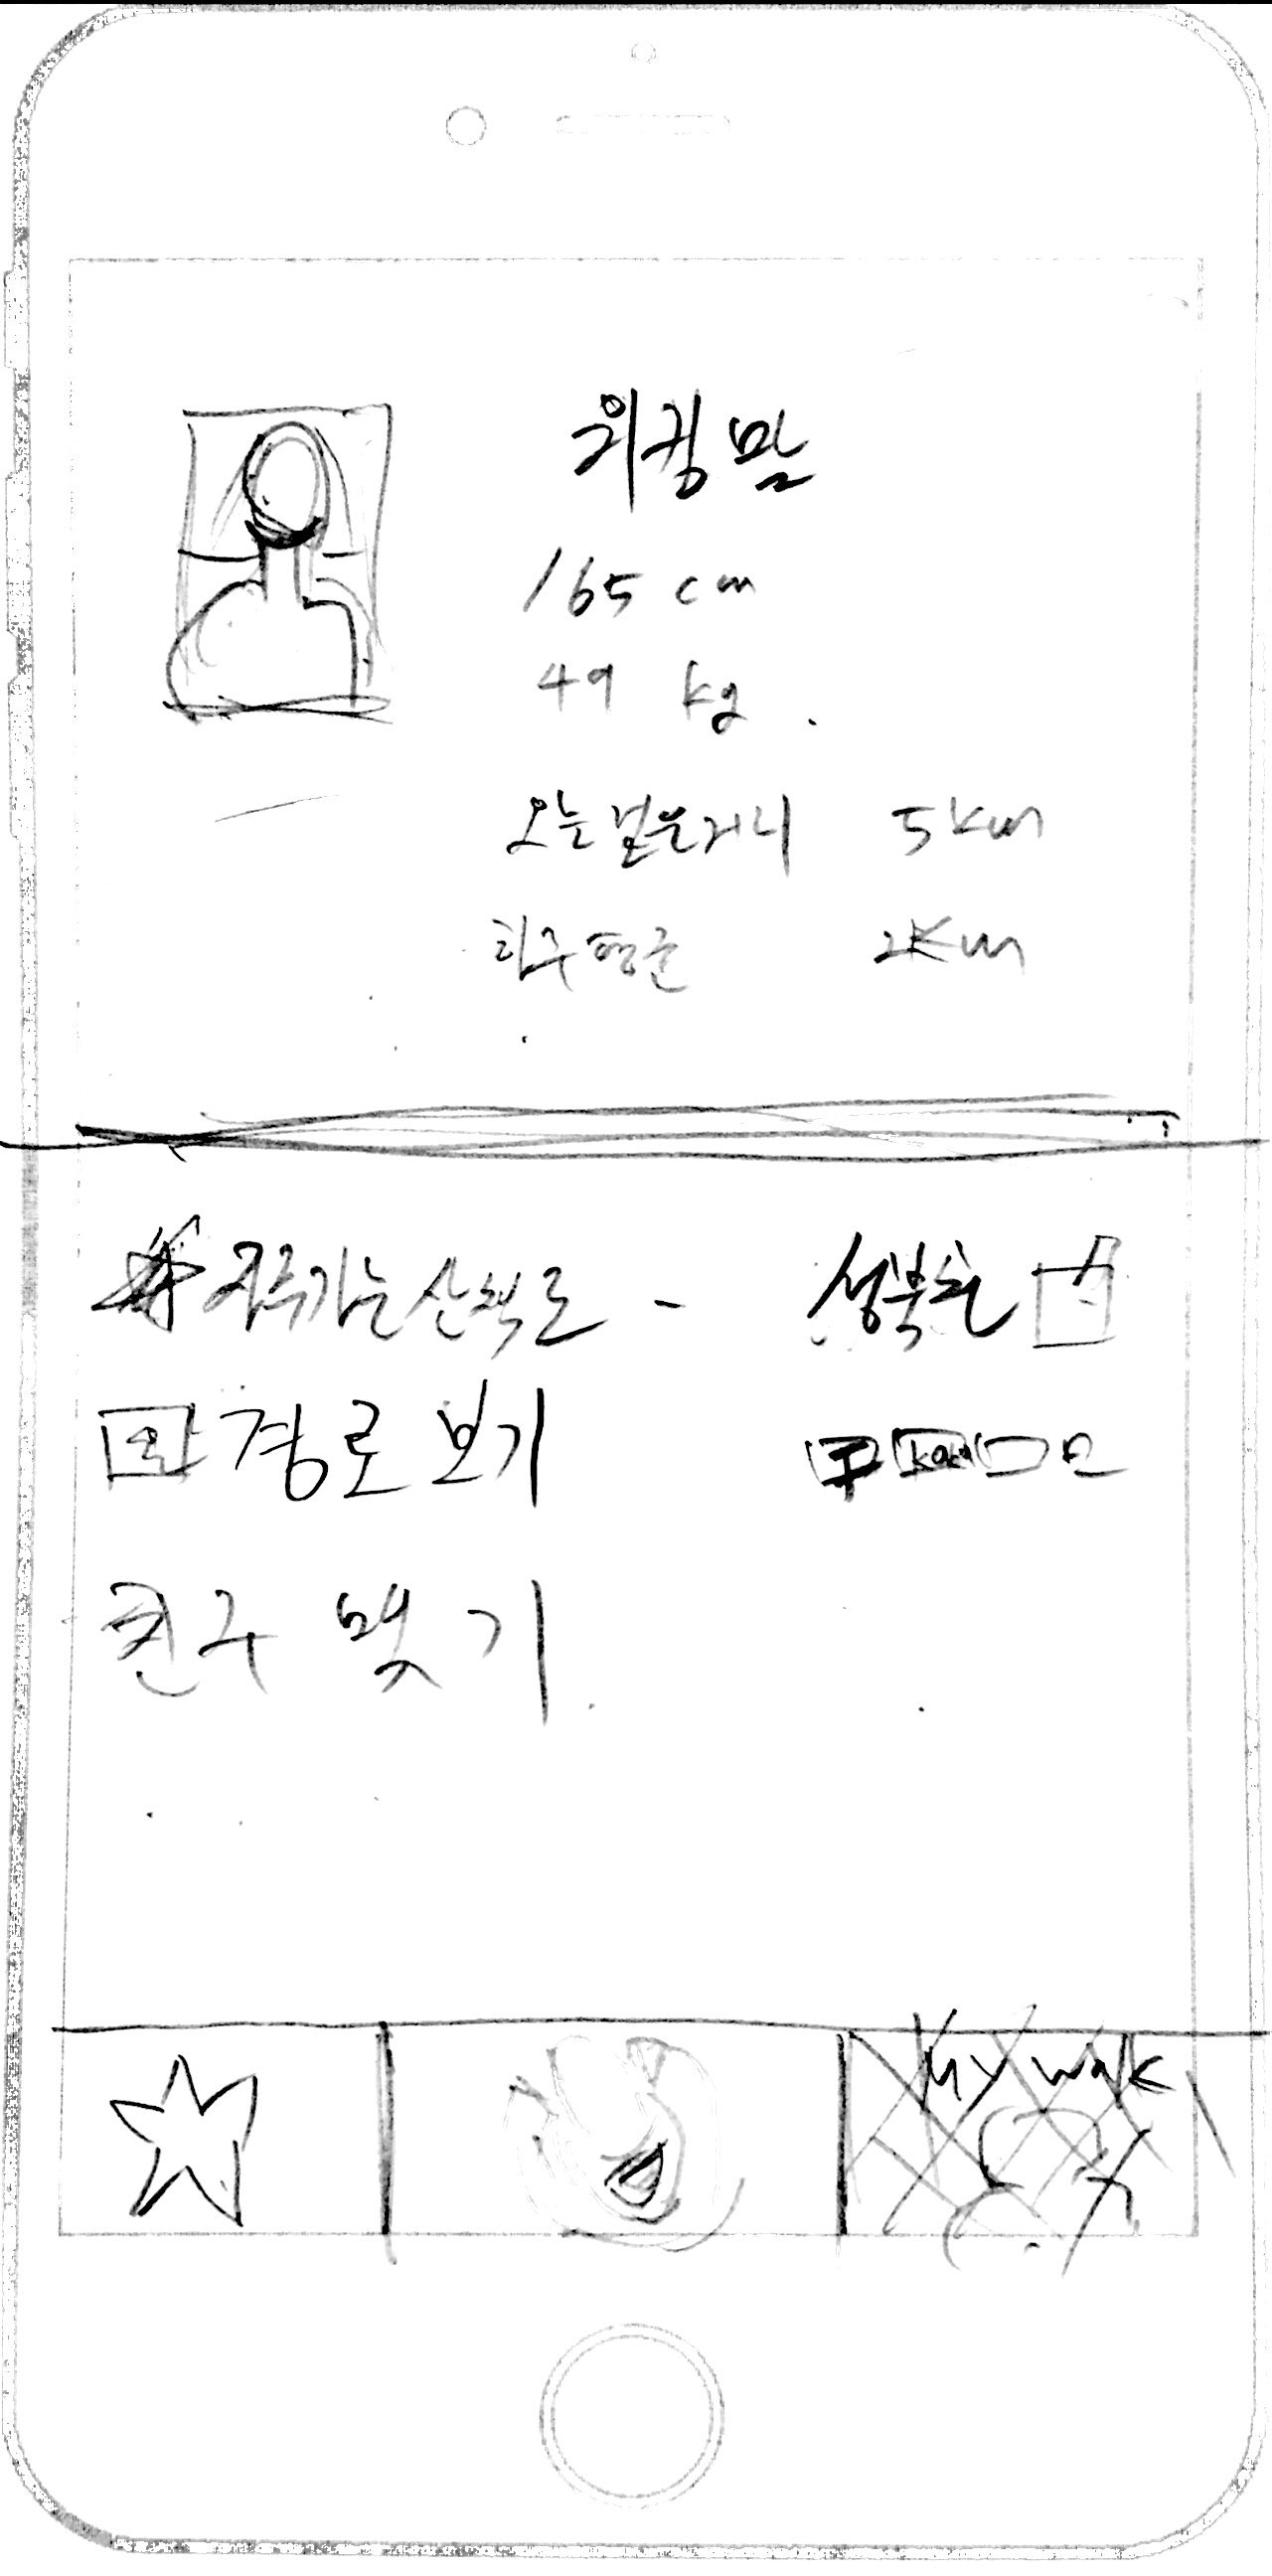 워킹맘
165 cm
49 kg
오늘 걸은거리 5km
하루 평균 2km
자주가는 산책로 - 성북천
경로 보기
친구 맺기
My walk